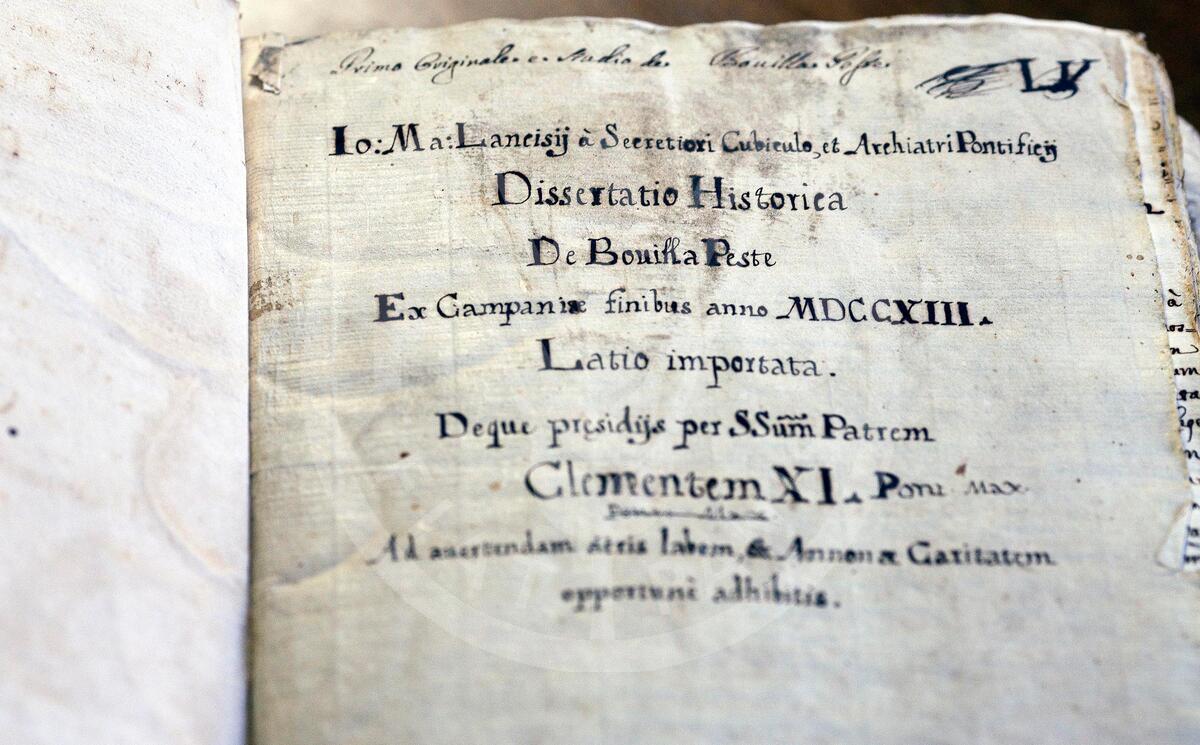 Primo Originale e Studio de
LV
Io: Ma: Lancisij à Secretiori Cubiculo, et Archiatri Pontificij
Dissertatio Historica
De Bouilla Peste
Ex Campaniæ finibus anno MDCCXIII.
Latio importata.
Deque pręsidijs per SSum̃ Patrem
Clementem XI. Pont Max
Pont Max
Ad auertendam aeris labem, & Annonæ Caritatem
opportunè adhibitis.